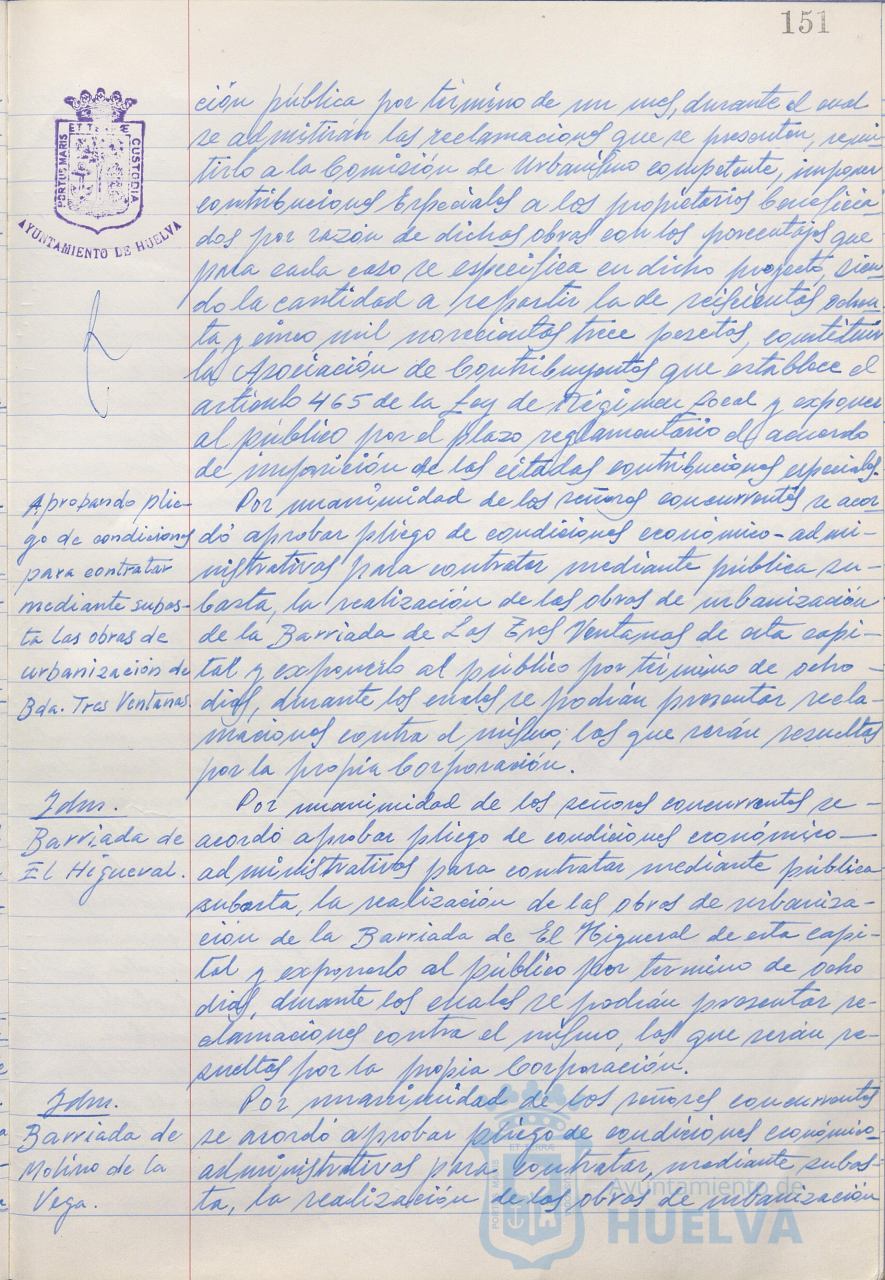 151
PORTUS MARIS ET TERRAE CUSTODIA
AYUNTAMIENTO DE HUELVA
ción pública por término de un mes, durante el cual
se admitirán las reclamaciones que se presenten, remi-
tirlo a la Comisión de Urbanismo competente, imponer
contribuciones Especiales a los propietarios beneficia-
dos por razón de dichas obras con los porcentajes que
para cada caso se especifica en dicho proyecto, sien-
do la cantidad a repartir la de seiscientas ochen-
ta y cinco mil novecientas trece pesetas, constituir
la Asociación de Contribuyentes que establece el
artículo 465 de la Ley de Régimen Local y exponer
al público por el plazo reglamentario el acuerdo
de imposición de las citadas contribuciones especiales.
Aprobando plie-
go de condiciones
para contratar
mediante subas-
ta las obras de
urbanización de
Bda. Tres Ventanas.
Por unanimidad de los señores concurrentes se acor-
dó aprobar pliego de condiciones económico-admi-
nistrativas para contratar mediante pública su-
basta, la realización de las obras de urbanización
de la Barriada de Las Tres Ventanas de esta capi-
tal y exponerlo al público por término de ocho
días, durante los cuales se podrán presentar recla-
maciones contra el mismo, las que serán resueltas
por la propia Corporación.
Idm.
Barriada de
El Higueral.
Por unanimidad de los señores concurrentes se
acordó aprobar pliego de condiciones económico-
administrativas para contratar mediante pública
subasta, la realización de las obras de urbaniza-
ción de la Barriada de El Higueral de esta capi-
tal y exponerlo al público por término de ocho
días, durante los cuales se podrán presentar re-
clamaciones contra el mismo, las que serán re-
sueltas por la propia Corporación.
Idm.
Barriada de
Molino de la
Vega.
Por unanimidad de los señores concurrentes
se acordó aprobar pliego de condiciones económico-
administrativas para contratar, mediante subas-
ta, la realización de las obras de urbanización
Ayuntamiento de
HUELVA